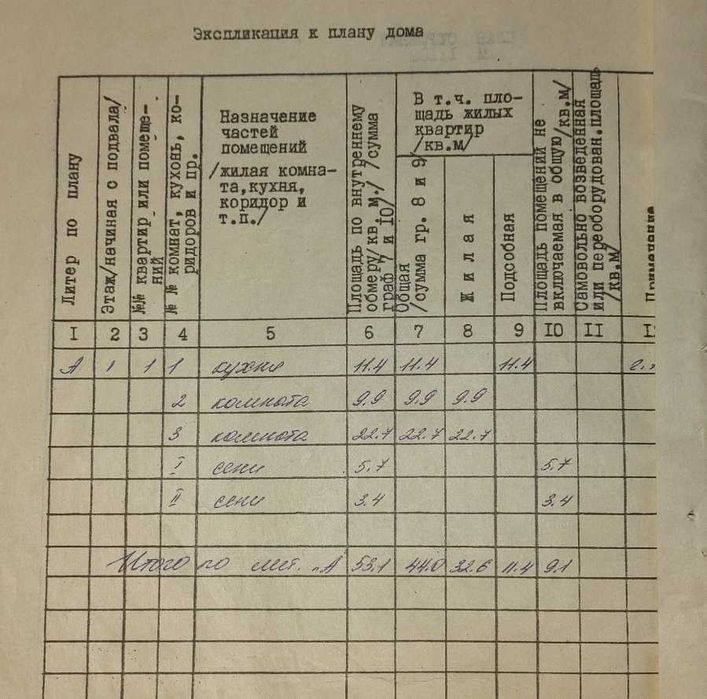 Экспликация к плану дома
Литер по плану
Этаж/начиная с подвала/
№№ квартир или помеще-
ний
№ № комнат, кухонь, ко-
ридоров и пр.
Назначение
частей
помещений
/жилая комна-
та,кухня,
коридор и
т.п./
Площадь по внутреннему
обмеру/кв. м./ /сумма
граф 7 и 10/
В т.ч. пло-
щадь жилых
квартир
/кв.м/
Общая
/сумма гр. 8 и 9/
Жилая
Подсобная
Площадь помещений не
включаемая в общую/кв.м/
Самовольно возведенная
или переоборудован.площадь
/кв.м/
Примечание
I 2 3 4 5 6 7 8 9 IO II
А 1 1 1 кухня 11.4 11.4 11.4
2 комната 9.9 9.9 9.9
3 комната 22.7 22.7 22.7
I сени 5.7 5.7
II сени 3.4 3.4
Итого по лит. „А 53.1 44.0 32.6 11.4 9.1